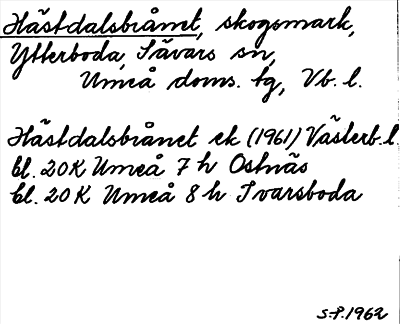 Hästdalsbrånet, skogsmark,
Ytterboda, Sävars sn,
Umeå doms. tg, Vb. l.
Hästdalsbrånet ek (1961) Västerb. l.
bl. 20K Umeå 7 h Ostnäs
bl. 20 K Umeå 8 h Ivarsboda
S-P. 1962